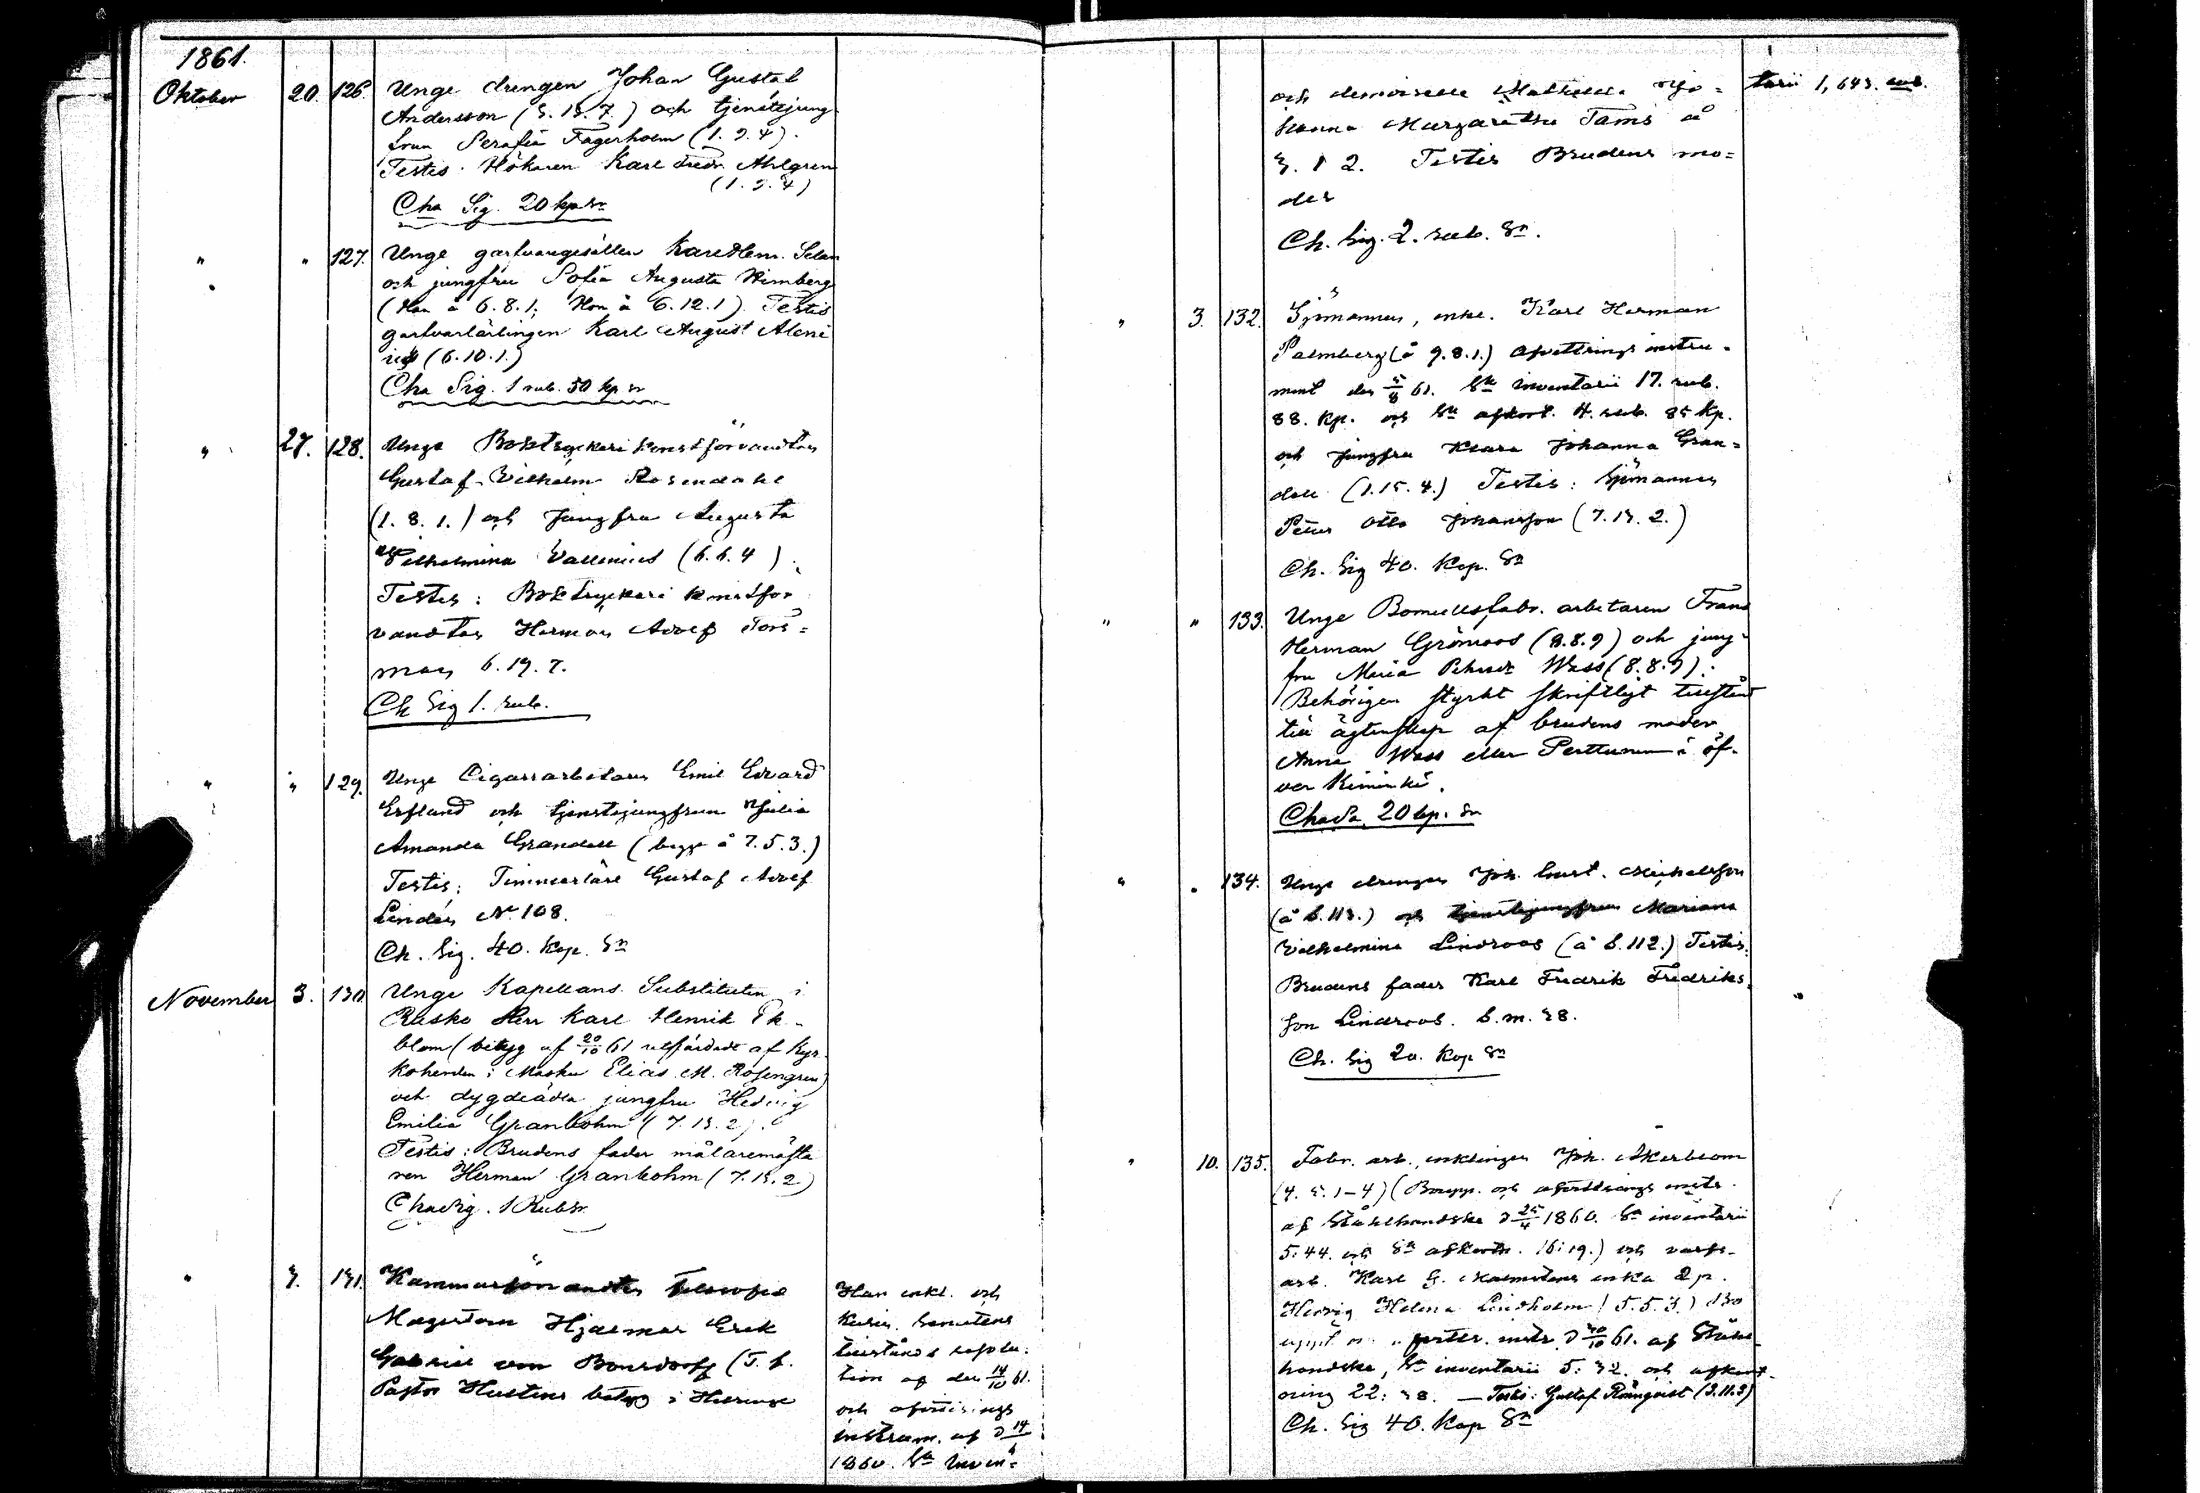 1861.
Oktober 20. 126. Unge drengen Johan Gustaf
Andersson (3.13.7.) och tjenstejung-
frun Serafia Fagerholm (1.9.4).
Testis. Hökaren Karl Fredr. Ahlgren
(1.9.4)
Cha Sig. 20 kp sr
" " 127. Unge garfvaregesällen Karl Hem. Selan
och jungfru Sofia Augusta Himberg
(Han å 6.8.1; Hon å 6.12.1). Testis
garfvarlärlingen Karl August Aleni
us (6.10.1.)
Cha Sig. 1 rub. 50 kp sr
" 27. 128. Unge Boktryckeri konstförvandten
Gustaf Vilhelm Rosendahl
(1.8.1.) och Jungfru Augusta
Vilhelmina Vallenius (6.6.4)
Testis: Boktryckeri konstför
vandten Herman Adolf Fors=
man 6.19.7.
Ch Sig 1. rub.
" " 129. Unge Cigarrarbetaren Emil Edvard
Erflund och tjenstejungfrun Julia
Amanda Grandell (begge å 7.5.3.)
Testis; Timmerlärl Gustaf Adolf
Lindén No 108.
Ch. Sig. 40. Kop. Sr
November 3. 130. Unge Kapellans Substituten i
Rusko Herr Karl Henrik Ek-
blom (betyg af 20/10 61 utfärdadt af Kyr-
koherden i Masku Elias M. Rosengren)
och dygdeädla jungfru Hedvig
Emilia Granbohm (7.13.2).
Testis: Brudens fader målaremästa
ren Herman Granbohm (7.13.2)
Cha Sig. 1 Rub Sr
" 3. 131. Kammarförvandten Filosofie
Magistern Hjalmar Erik
Gabriel von Bonsdorff (T. f.
Pastor Hustens betyg i
Han enkl. och
Keis. Senatens
tillstånds resolu-
tion af den 14/10 61.
och afvittrings
instrum. af d 14/
1860. Sa Inven=
och demoiselle Mathilda Jo=
hanna Margaretha Tams å
3. 1 2. Testis Brudens mo=
der
Ch. Sig. 2. rub. Sr.
tarii 1,643. rub.
" 3. 132. Sjömannen, enkl. Karl Herman
Palmberg (å 9.8.1.) Afvittrings instru-
ment den 5/8 61. Sa inventarii 17. rub.
88. Kp. och Sa afkort. 4. rub. 85 Kp.
och Jungfru Klara Johanna Gran=
dell (1.15.4.) Testis: Sjömannen
Petter Otto Johansson (7.13.2.)
Ch. Sig 40. Kop. Sr
" " 133. Unge Bomullsfabr. arbetaren Frans
Herman Grönroos (8.8.9) och jung-
fru Maria Wass (8.8.9).
Behörigen styrkt skriftligt tillstånd
till ägtenskap af brudens moder
Anna Wass eller Perttunen i öf-
ver Kiminki.
Cha Sa 20 kp. Sr
" " 134. Unge drengen Joh. Gust. Michelsson
(å 6.113.) och tjenstejungfrun Mariana
Vilhelmina Lindroos (å 6.112.) Testis:
Brudens fader Karl Fredrik Fredriks-
son Lindroos. S.m. 28.
Ch. Sig 20. Kop Sr
" 10. 135. Fabr. arb., enklingen Joh. Åkerblom
(4.5.1-4) (Boupp. och afvittrings instr.
af Stålhandske d 25/4 1860. Sa inventarii
5:44. och Sa afkortn. 16:19.) och varfs-
arb. Karl G. Malmstens enka 2 p.
Hedvig Helena Lindholm (5.5.3.)
instr. d 30/10 61. af Stål-
handske, Sa inventarii 5. 32. och afkort-
ning 22: 38. — Testis: Gustaf Rönnqvist (3.11.3)
Ch. Sig 40. Kop Sr